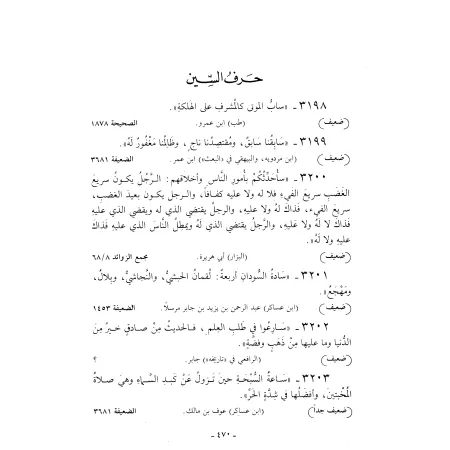 حَرفُ السِّين
٣١٩٨ - «سابُّ الموتى كالمُشرفِ على الهلكةِ».
(ضعيف) (طب) ابن عمرو. الصحيحة ١٨٧٨
٣١٩٩ - «سَابِقُنا سَابِقٌ، ومُقتصِدُنا ناجٍ، وظالمُنا مَغْفُورٌ لَهُ».
(ضعيف) (ابن مردويه، والبيهقي في «البعث») ابن عمر. الضعيفة ٣٦٨١
٣٢٠٠ - «سَأُحدِّثُكُمْ بأُمورِ النَّاسِ وأخلاقهم: الرَّجُلُ يكونُ سريعَ
الغَضَبِ سريعَ الفيءِ فلا له ولا عليه كفافاً، والرجل يكون بعيدَ الغضَبِ،
سريعَ الفيء، فَذاكَ لَهُ ولا عليهِ، والرجلُ يقتضي الذي له ويقضي الذي عليهِ
فَذاكَ لا لَهُ ولا عَليهِ، والرَّجلُ يقتضي الذي لَهُ ويمطِلُ النَّاسَ الذي عليهِ فَذاكَ
عليهِ ولا لَهُ».
(ضعيف) (البزار) أبي هريرة. مجمع الزوائد ٦٨/٨
٣٢٠١ - «سَادةُ السُّودانِ أربعةٌ: لُقمانُ الحبشيُّ، والنَّجاشيُّ، وبلالٌ،
ومِهْجَعٌ».
(ضعيف) (ابن عساكر) عبد الرحمن بن يزيد بن جابر مرسلاً. الضعيفة ١٤٥٣
٣٢٠٢ - «سَارِعُوا في طَلَبِ العِلمِ، فالحديثُ مِنْ صادقٍ خيرٌ مِنَ
الدُّنيا وما عليها مِنْ ذَهَبٍ وفضَّةٍ».
(ضعيف) (الرافعي في «تاريخه») جابر. ؟
٣٢٠٣ - «سَاعةُ السُّبْحَةِ حينَ تَزولُ عَنْ كَبِدِ السَّماءِ وهيَ صلاةُ
المُخْبتينَ، وأفضلُها في شِدَّةِ الحَرِّ».
(ضعيف جداً) (ابن عساكر) عوف بن مالك. الضعيفة ٣٦٨١
- ٤٧٠ -